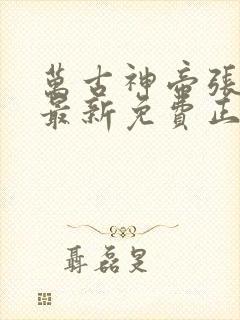 萬古神帝張
最新免費正
聶磊旻